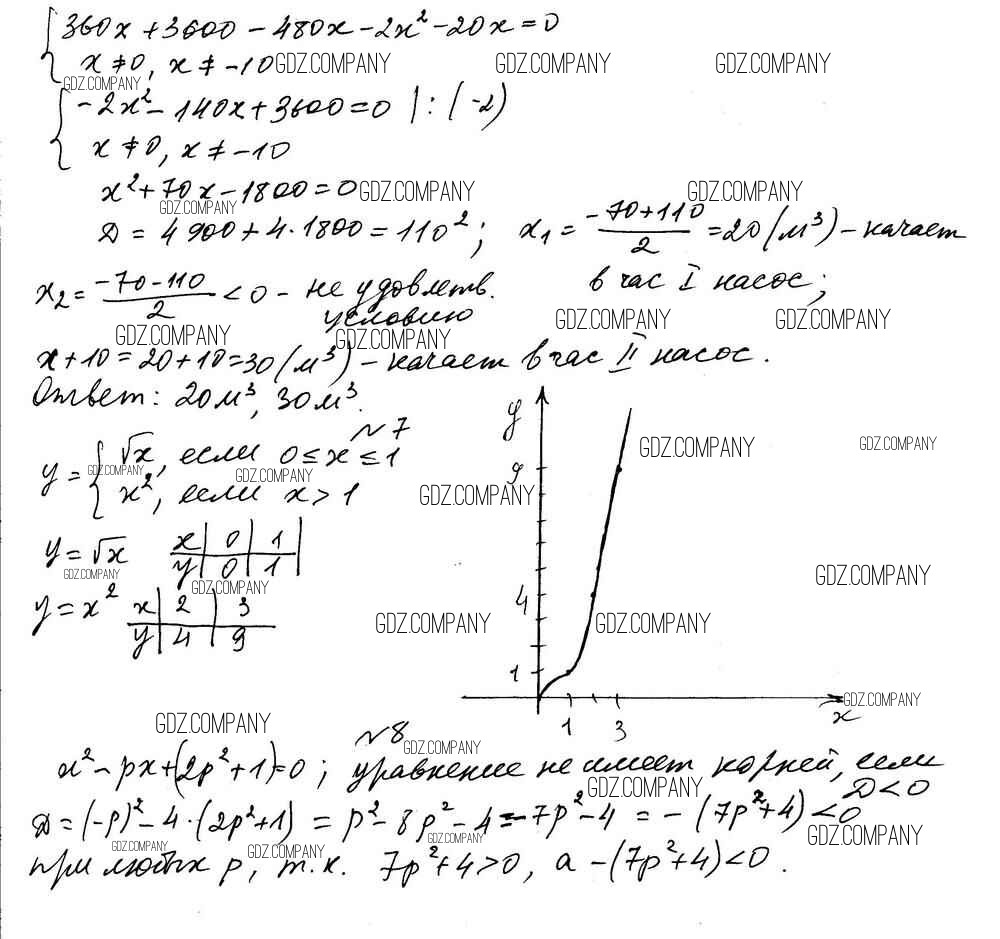 { 360x + 3600 - 480x - 2x² - 20x = 0
x ≠ 0, x ≠ -10 GDZ.COMPANY GDZ.COMPANY GDZ.COMPANY
GDZ.COMPANY
{ -2x² - 140x + 3600 = 0 | : (-2)
x ≠ 0, x ≠ -10
x² + 70x - 1800 = 0 GDZ.COMPANY GDZ.COMPANY
GDZ.COMPANY
D = 4900 + 4·1800 = 110²; x₁ = (-70+110)/2 = 20 (м³) - качает
x₂ = (-70-110)/2 < 0 - не удовлетв. в час I насос;
условию
GDZ.COMPANY GDZ.COMPANY GDZ.COMPANY GDZ.COMPANY
x + 10 = 20 + 10 = 30 (м³) - качает в час II насос.
Ответ: 20м³, 30м³.
N7
y = { √x, если 0 ≤ x ≤ 1
x², если x > 1
GDZ.COMPANY GDZ.COMPANY GDZ.COMPANY GDZ.COMPANY GDZ.COMPANY
y = √x x | 0 | 1 |
y | 0 | 1 |
GDZ.COMPANY GDZ.COMPANY GDZ.COMPANY
y = x² x | 2 | 3
y | 4 | 9
GDZ.COMPANY GDZ.COMPANY
y
9
4
1
1 3
x
GDZ.COMPANY
GDZ.COMPANY
N8
GDZ.COMPANY
x² - px + (2p² + 1) = 0; уравнение не имеет корней, если
GDZ.COMPANY
D < 0
D = (-p)² - 4·(2p² + 1) = p² - 8p² - 4 = -7p² - 4 = -(7p² + 4) < 0
GDZ.COMPANY GDZ.COMPANY GDZ.COMPANY GDZ.COMPANY
при любых p, т.к. 7p² + 4 > 0, а -(7p² + 4) < 0.